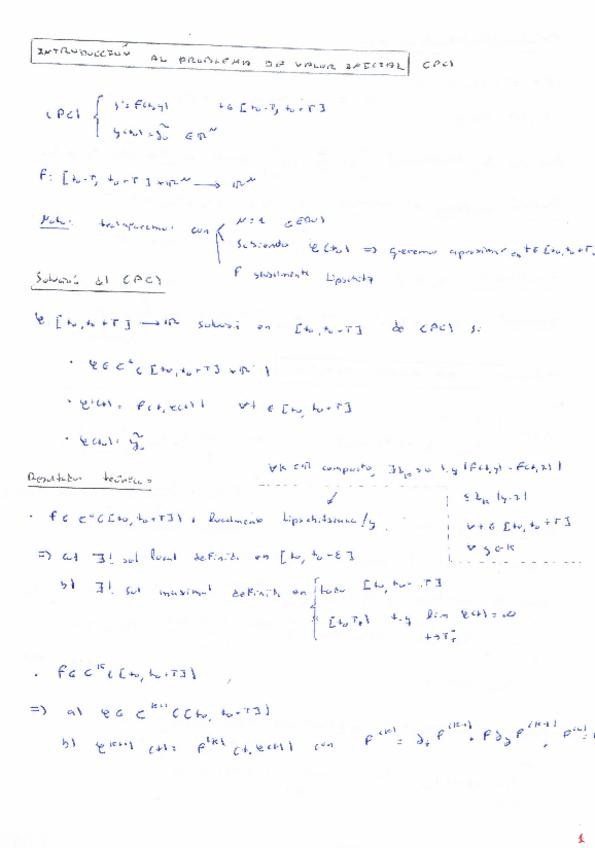 INTRODUCCIÓN AL PROBLEMA DE VALOR INICIAL (PC)
(PC) { y' = f(t,y) t ∈ [t₀-T, t₀+T]
y(t₀) = ỹ₀ ∈ ℝᴺ
f: [t₀-T, t₀+T] × ℝᴺ → ℝᴺ
Nota: trabajaremos con { N=1 (EDO)
Sabiendo φ(t₀) ⇒ queremos aproximar en t ∈ [t₀, t₀+T]
f globalmente Lipschitz
Solución del (PC)
φ [t₀, t₀+T] → ℝ solución en [t₀, t₀+T] de (PC) si
· φ ∈ C¹([t₀, t₀+T] × ℝ)
· φ'(t) = f(t, φ(t)) ∀t ∈ [t₀, t₀+T]
· φ(t₀) = ỹ₀
∀K ⊂ ℝ compacto, ∃L_K > 0 t.q |f(t,y) - f(t,z)|
Resultados teóricos
≤ L_K |y-z|
· f ∈ C⁰([t₀, t₀+T]) y localmente Lipschitziana /y
∀t ∈ [t₀, t₀+T]
∀ y ∈ K
⇒ a) ∃! sol local definida en [t₀, t₀+ε]
b) ∃! sol maximal definida en { todo [t₀, t₀+T]
[t₀, T₊) t.q lim φ(t) = ∞
t→T₊⁻
· f ∈ Cᴷ([t₀, t₀+T])
⇒ a) φ ∈ Cᴷ⁺¹([t₀, t₀+T])
b) φ⁽ᴷ⁺¹⁾(t) = f⁽ᴷ⁾(t, φ(t)) con f⁽ᴷ⁾ = ∂ₜ f⁽ᴷ⁻¹⁾ + f ∂ᵧ f⁽ᴷ⁻¹⁾, f⁽⁰⁾ =
1